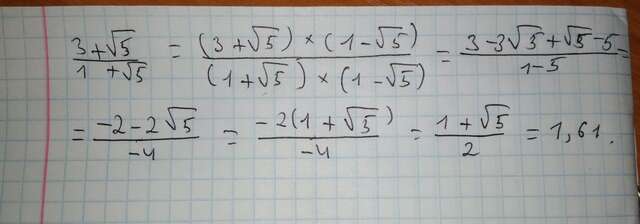 (3+√5)/(1+√5) = ((3+√5)×(1-√5))/((1+√5)×(1-√5)) = (3-3√5+√5-5)/(1-5) =
= (-2-2√5)/(-4) = (-2(1+√5))/(-4) = (1+√5)/2 = 1,61.